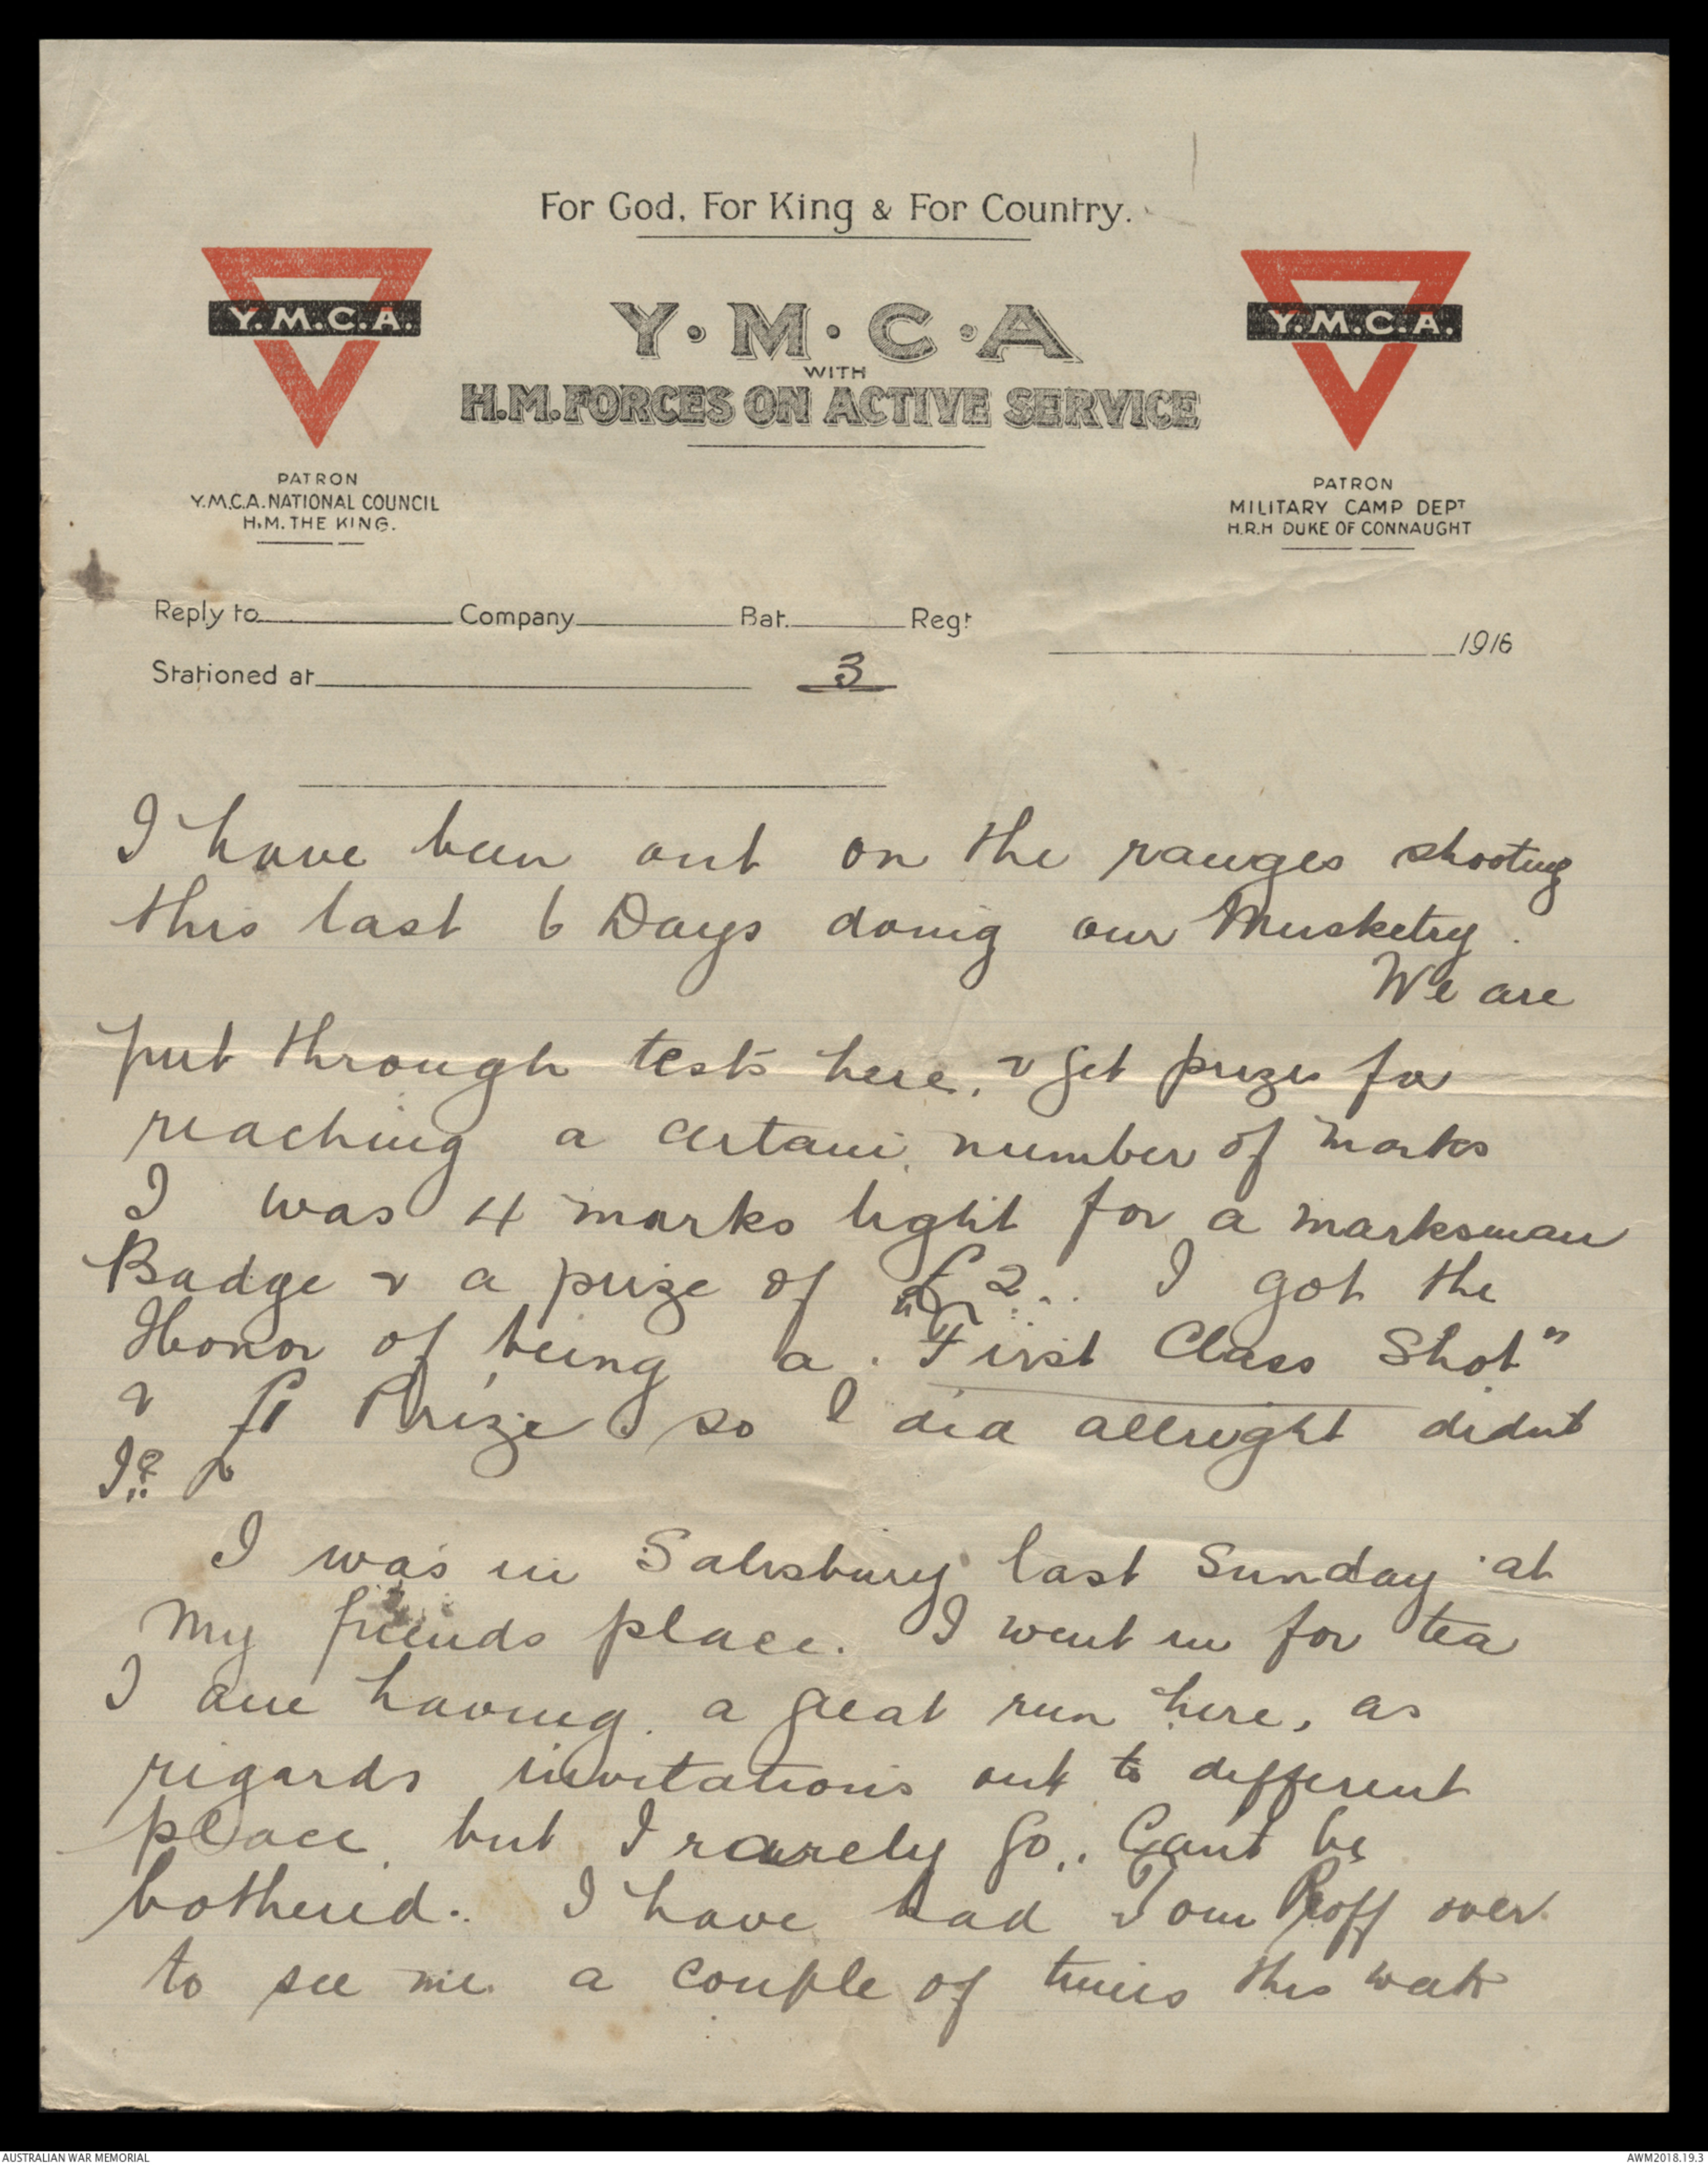 For God, For King & For Country.
Y.M.C.A.
Y.M.C.A.
Y·M·C·A
WITH
H.M. FORCES ON ACTIVE SERVICE
PATRON
Y.M.C.A. NATIONAL COUNCIL
H.M. THE KING.
PATRON
MILITARY CAMP DEPT
H.R.H DUKE OF CONNAUGHT
Reply to Company Bat. Regt
1916
Stationed at 3
I have been out on the ranges shooting
this last 6 Days doing our Musketry.
We are
put through tests here, & get prizes for
reaching a certain number of marks
I was 4 marks light for a marksman
Badge & a prize of £2.. I got the
Honor of being a "First Class Shot"
& £1 Prize so I did allright didnt
I?
I was in Salisbury last Sunday at
my friends place. I went in for tea
I am having a great run here, as
regards invitations out to different
place, but I rarely go.. Cant be
bothered. I have had Tom over
to see me a couple of times this week
AUSTRALIAN WAR MEMORIAL
AWM2018.19.3